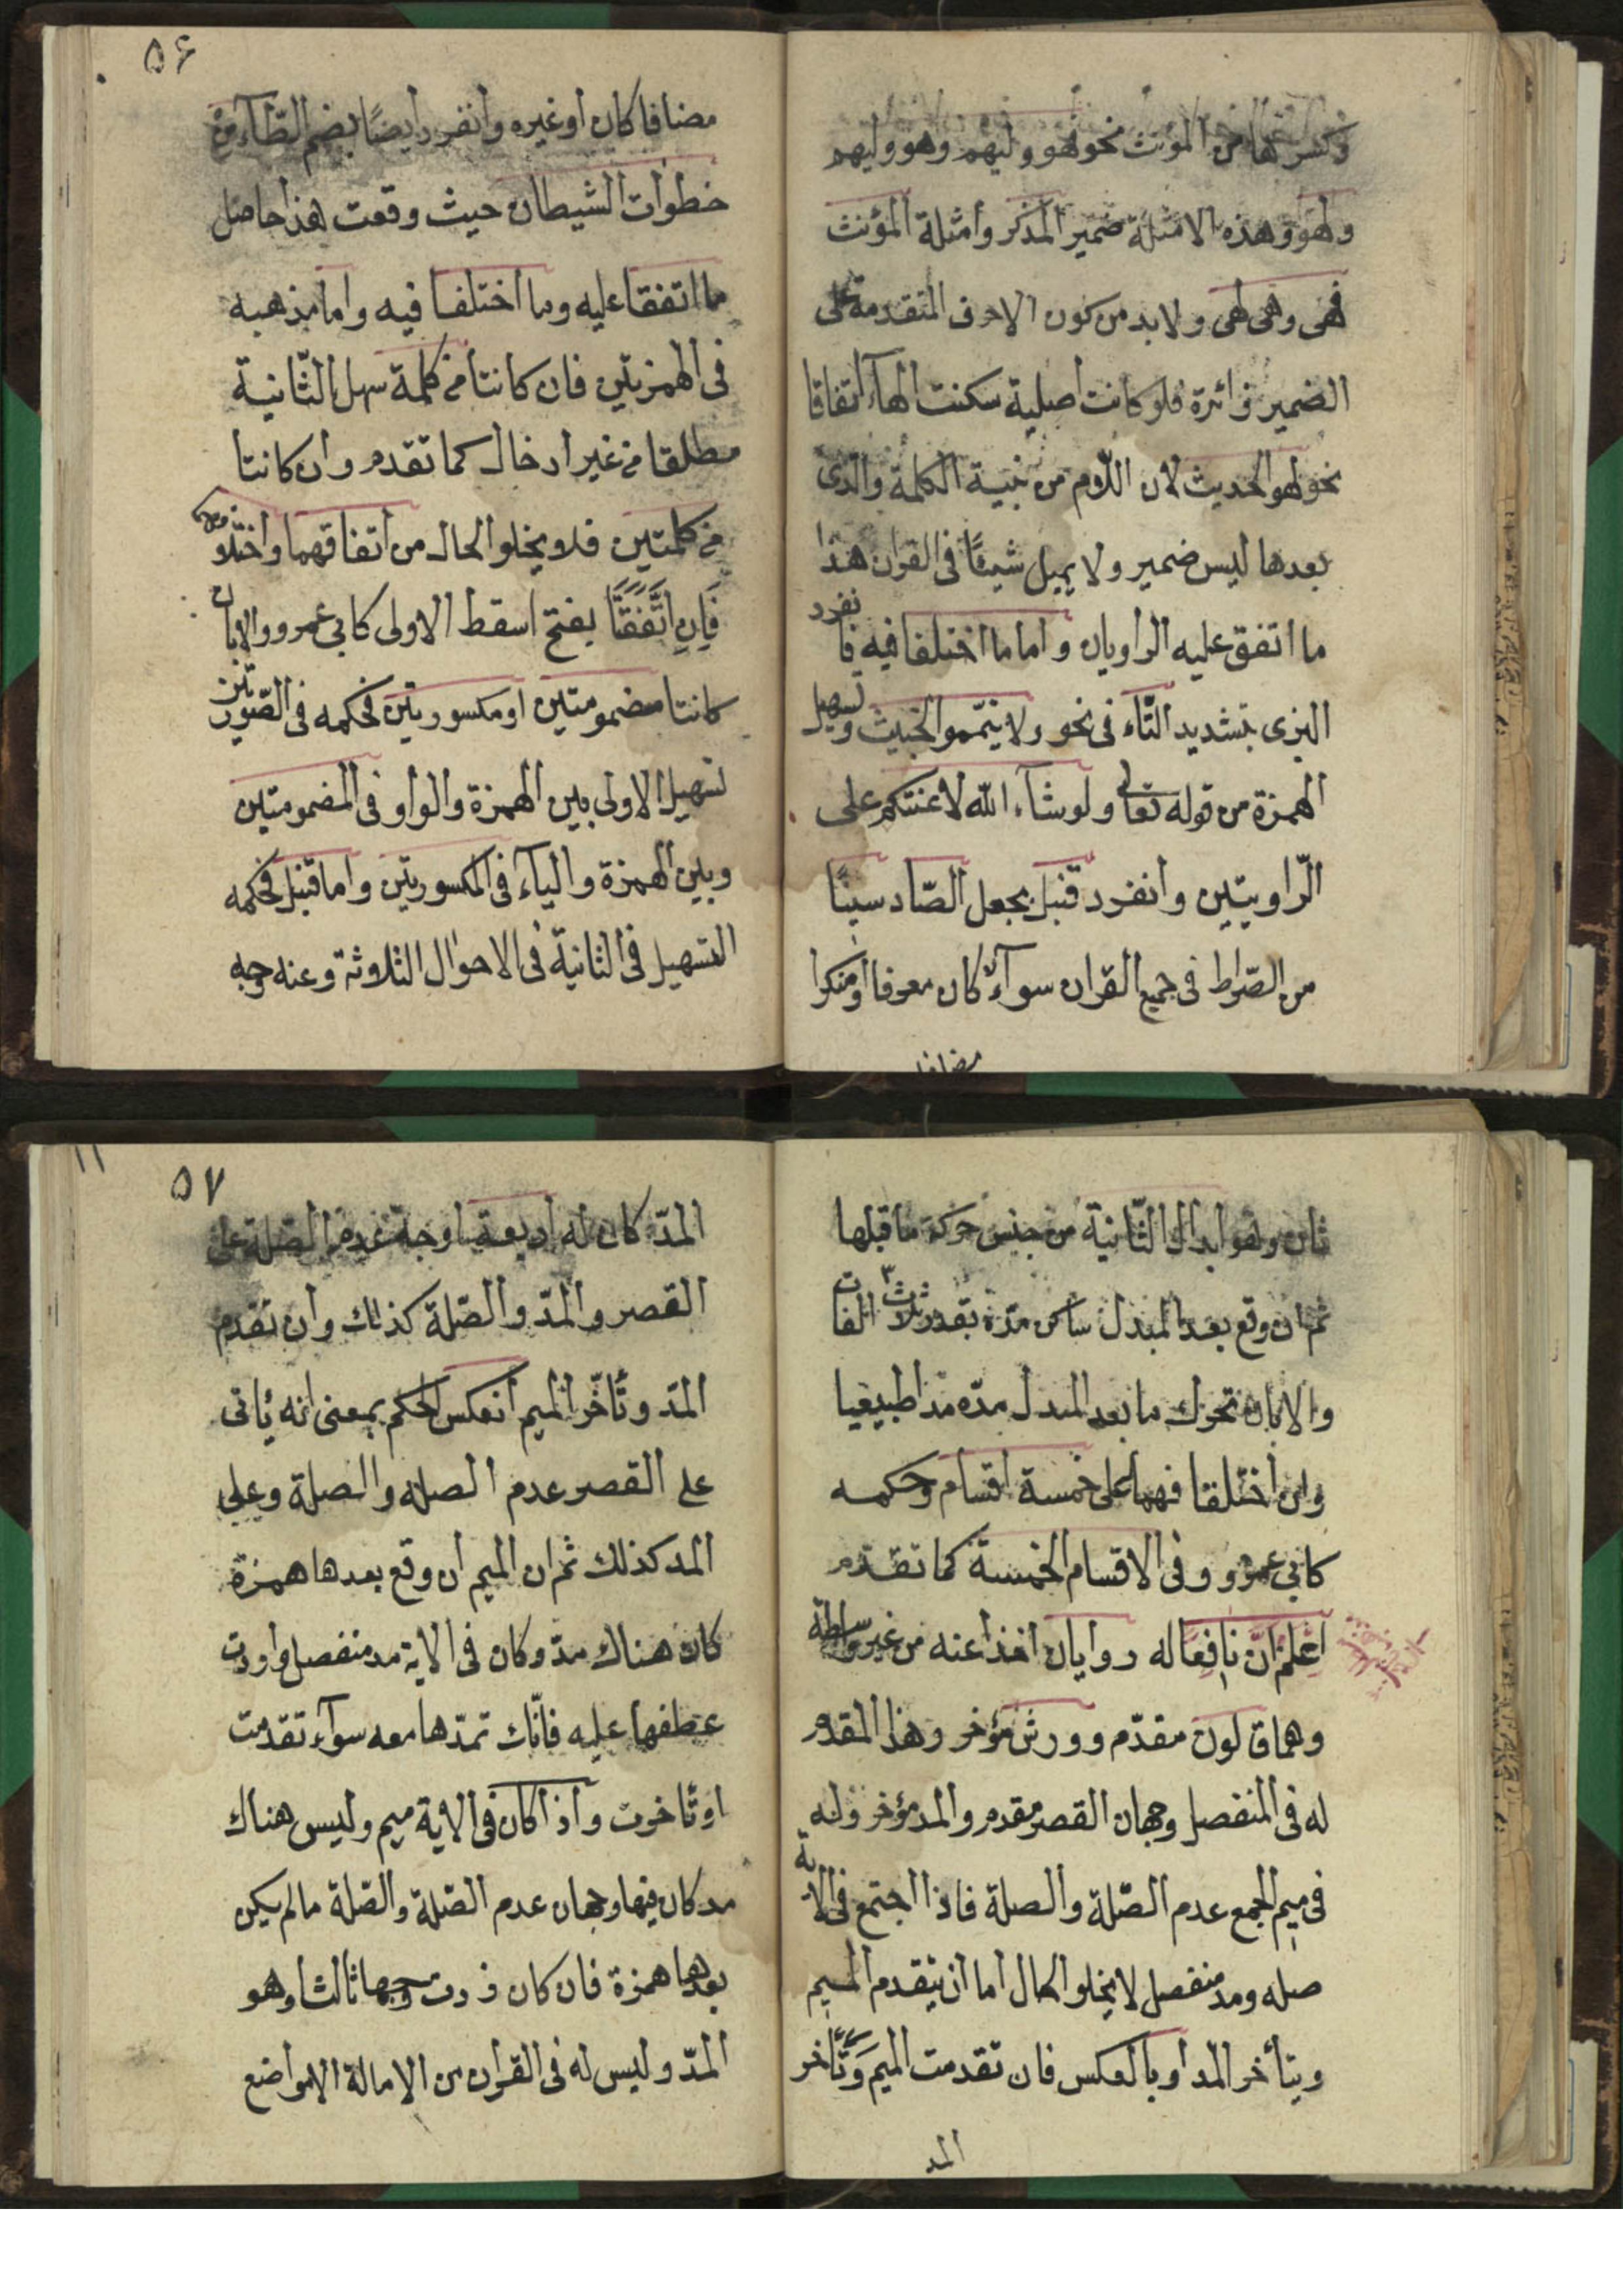 وكسرها من المؤنث نحو فهو وليهم وهو وليهم
ولهو وهذه الامثلة ضمير المذكر وامثلة المؤنث
فهى وهى لهى ولا بد من كون الاحرف المتقدمة على
الضمير زائرة فلو كانت اصلية سكنت الهآء اتفاقا
نحو لهو الحديث لان اللام من بنية الكلمة والذى
بعدها ليس ضمير ولا يميل شيئًا فى القران هذا
ما اتفق عليه الراويان واما ما اختلفا فيه فانفرد
البزى بتشديد التّاء فى نحو ولا تيمموا الخبيث وتسهيل
الهمزة من قوله تعالى ولو شآء الله لاعنتكم على
الرّاويتين وانفرد قنبل بجعل الصّاد سينًا
من الصّراط فى جميع القران سوآء كان معرفا او منكرا
مضافا
۵۶
مضافا كان او غيره وانفرد ايضًا بضم الطّآء من
خطوات الشيطان حيث وقعت هذا حاصل
ما اتفقا عليه وما اختلفا فيه واما مذهبه
فى الهمزتين فان كانتا فى كلمة سهل الثّانية
مطلقا من غير ادخال كما تقدم وان كانتا
فى كلمتين فلا يخلو الحال من اتفاقهما واختلافهما
فَاِنِ اتَّفَقَتَا بفتح اسقط الاولى كابى عمرو والابان
كانتا مضمومتين او مكسورتين فحكمه فى الصّورتين
تسهيل الاولى بين الهمزة والواو فى المضمومتين
وبين الهمزة واليآء فى المكسورتين واما قنبل فحكمه
التسهيل فى الثانية فى الاحوال الثلاثة وعنه وجه
ثان وهو ابدال الثّانية من جنس حركة ما قبلها
ثم ان وقع بعد المبدل ساكن مدّه بقدر ثلاث ٣ الفات
والابان تحرك ما بعد المبدل مدّه مدا طبيعيا
وان اختلفا فهما على خمسة اقسام وحكمه
كابى عمرو وفى الاقسام الخمسة كما تقدم
اِعْلَمْ انَّ نافِعًا له روايان اخذا عنه من غير واسطة
وهما قالون مقدّم وورش مؤخر وهذا المقدم
له فى المنفصل وجهان القصر مقدم والمد مؤخر وله
فى ميم الجمع عدم الصّلة والصلة فاذا اجتمع فى الاية
صله ومد منفصل لا يخلو الحال اما ان يتقدم الميم
ويتأخر المد او بالعكس فان تقدمت الميم وَتَأخر
المد
۵۷
١١
المدّ كان له اربعة اوجة عدم الصلة على
القصر والمدّ والصّلة كذلك وان تقدم
المدّ وتأخّر الميم انعكس الحكم بمعنى انه يأتى
على القصر عدم الصله والصلة وعلى
المد كذلك ثم ان الميم ان وقع بعدها همزة
كان هناك مدّ وكان فى الاية مد منفصل واردت
عطفها عليه فانّك تمدّها معه سوآء تقدمت
او تأخرت واذا كان فى الاية ميم وليس هناك
مد كان فيها وجهان عدم الصّلة والصّلة ما لم يكن
بعدها همزة فان كان زدت وجها ثالثا وهو
المدّ وليس له فى القران من الامالة الا مواضع